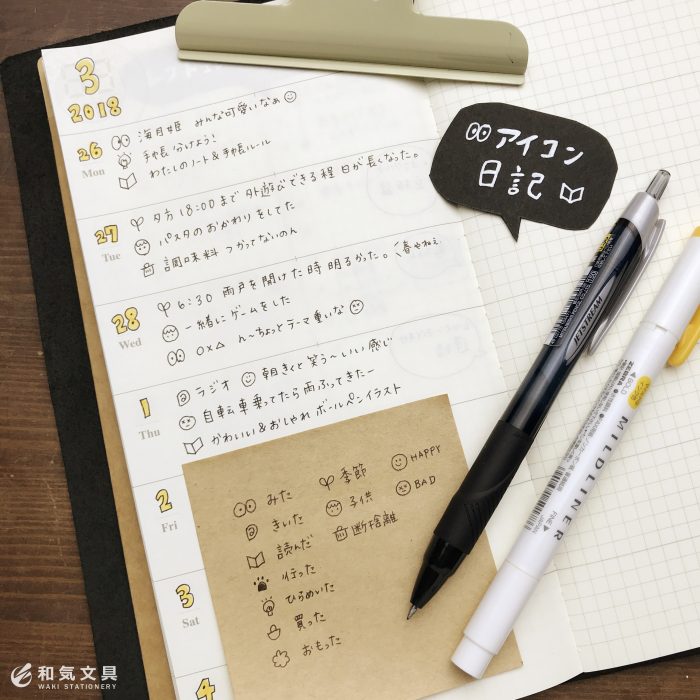 3
2018
26
Mon
海月姫 みんな可愛いなぁ
手帳分けよう!
わたしのノート&手帳ルール
27
Tue
夕方18:00まで外遊びできる程日が長くなった。
パスタのおかわりをしてた
調味料つかってないのん
28
Wed
6:30 雨戸を開けた時明るかった。春やねぇ
一緒にゲームをした
○×△ ん〜ちょっとテーマ重いな
1
Thu
ラジオ 朝きくと笑う〜いい感じ
自転車乗ってたら雨ふってきたー
かわいい&おしゃれボールペンイラスト
2
Fri
3
Sat
4
アイコン
日記
みた
きいた
読んだ
行った
ひらめいた
買った
おもった
季節
子供
断捨離
HAPPY
BAD
JETSTREAM
ZEBRA
MILDLINER
BOLD
FINE
JAPAN
和気文具
WAKI STATIONERY